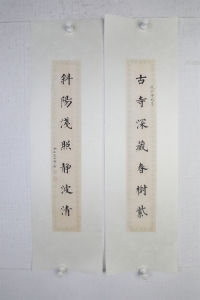 古寺深藏春樹紫
斜陽淺照靜波清